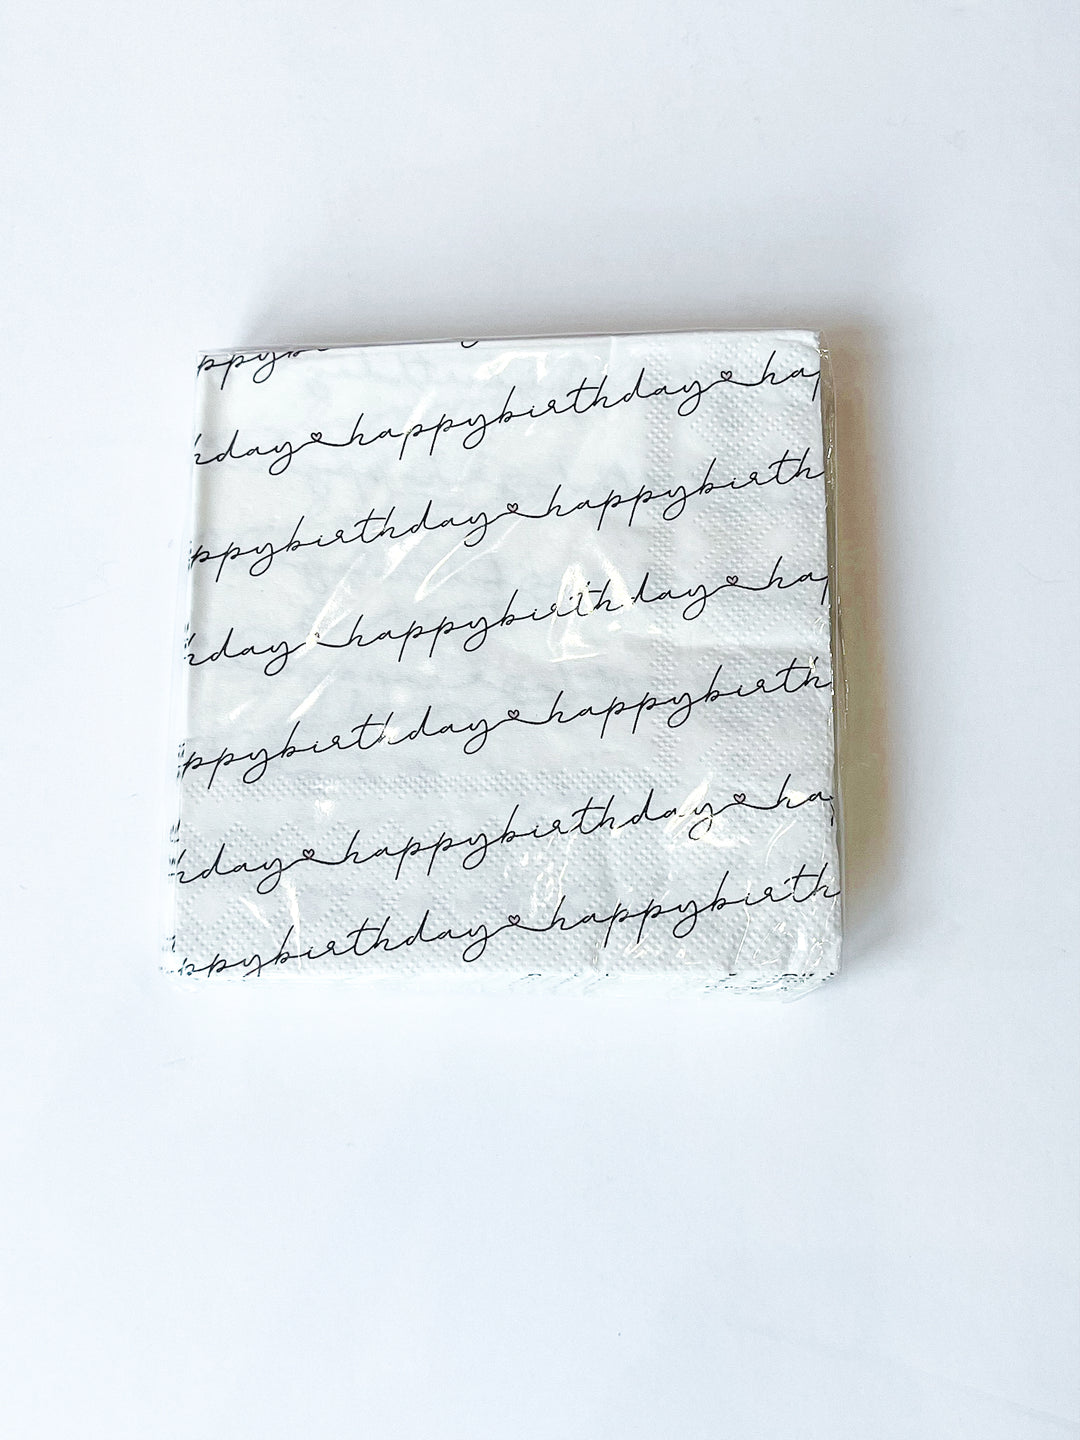 ppybi
hday♡happybirthday♡hap
ppybirthday♡happybirth
hday happybirthday♡hap
ppybirthday♡happybirth
hday♡happybirthday♡ha
ppybirthday♡happybirth